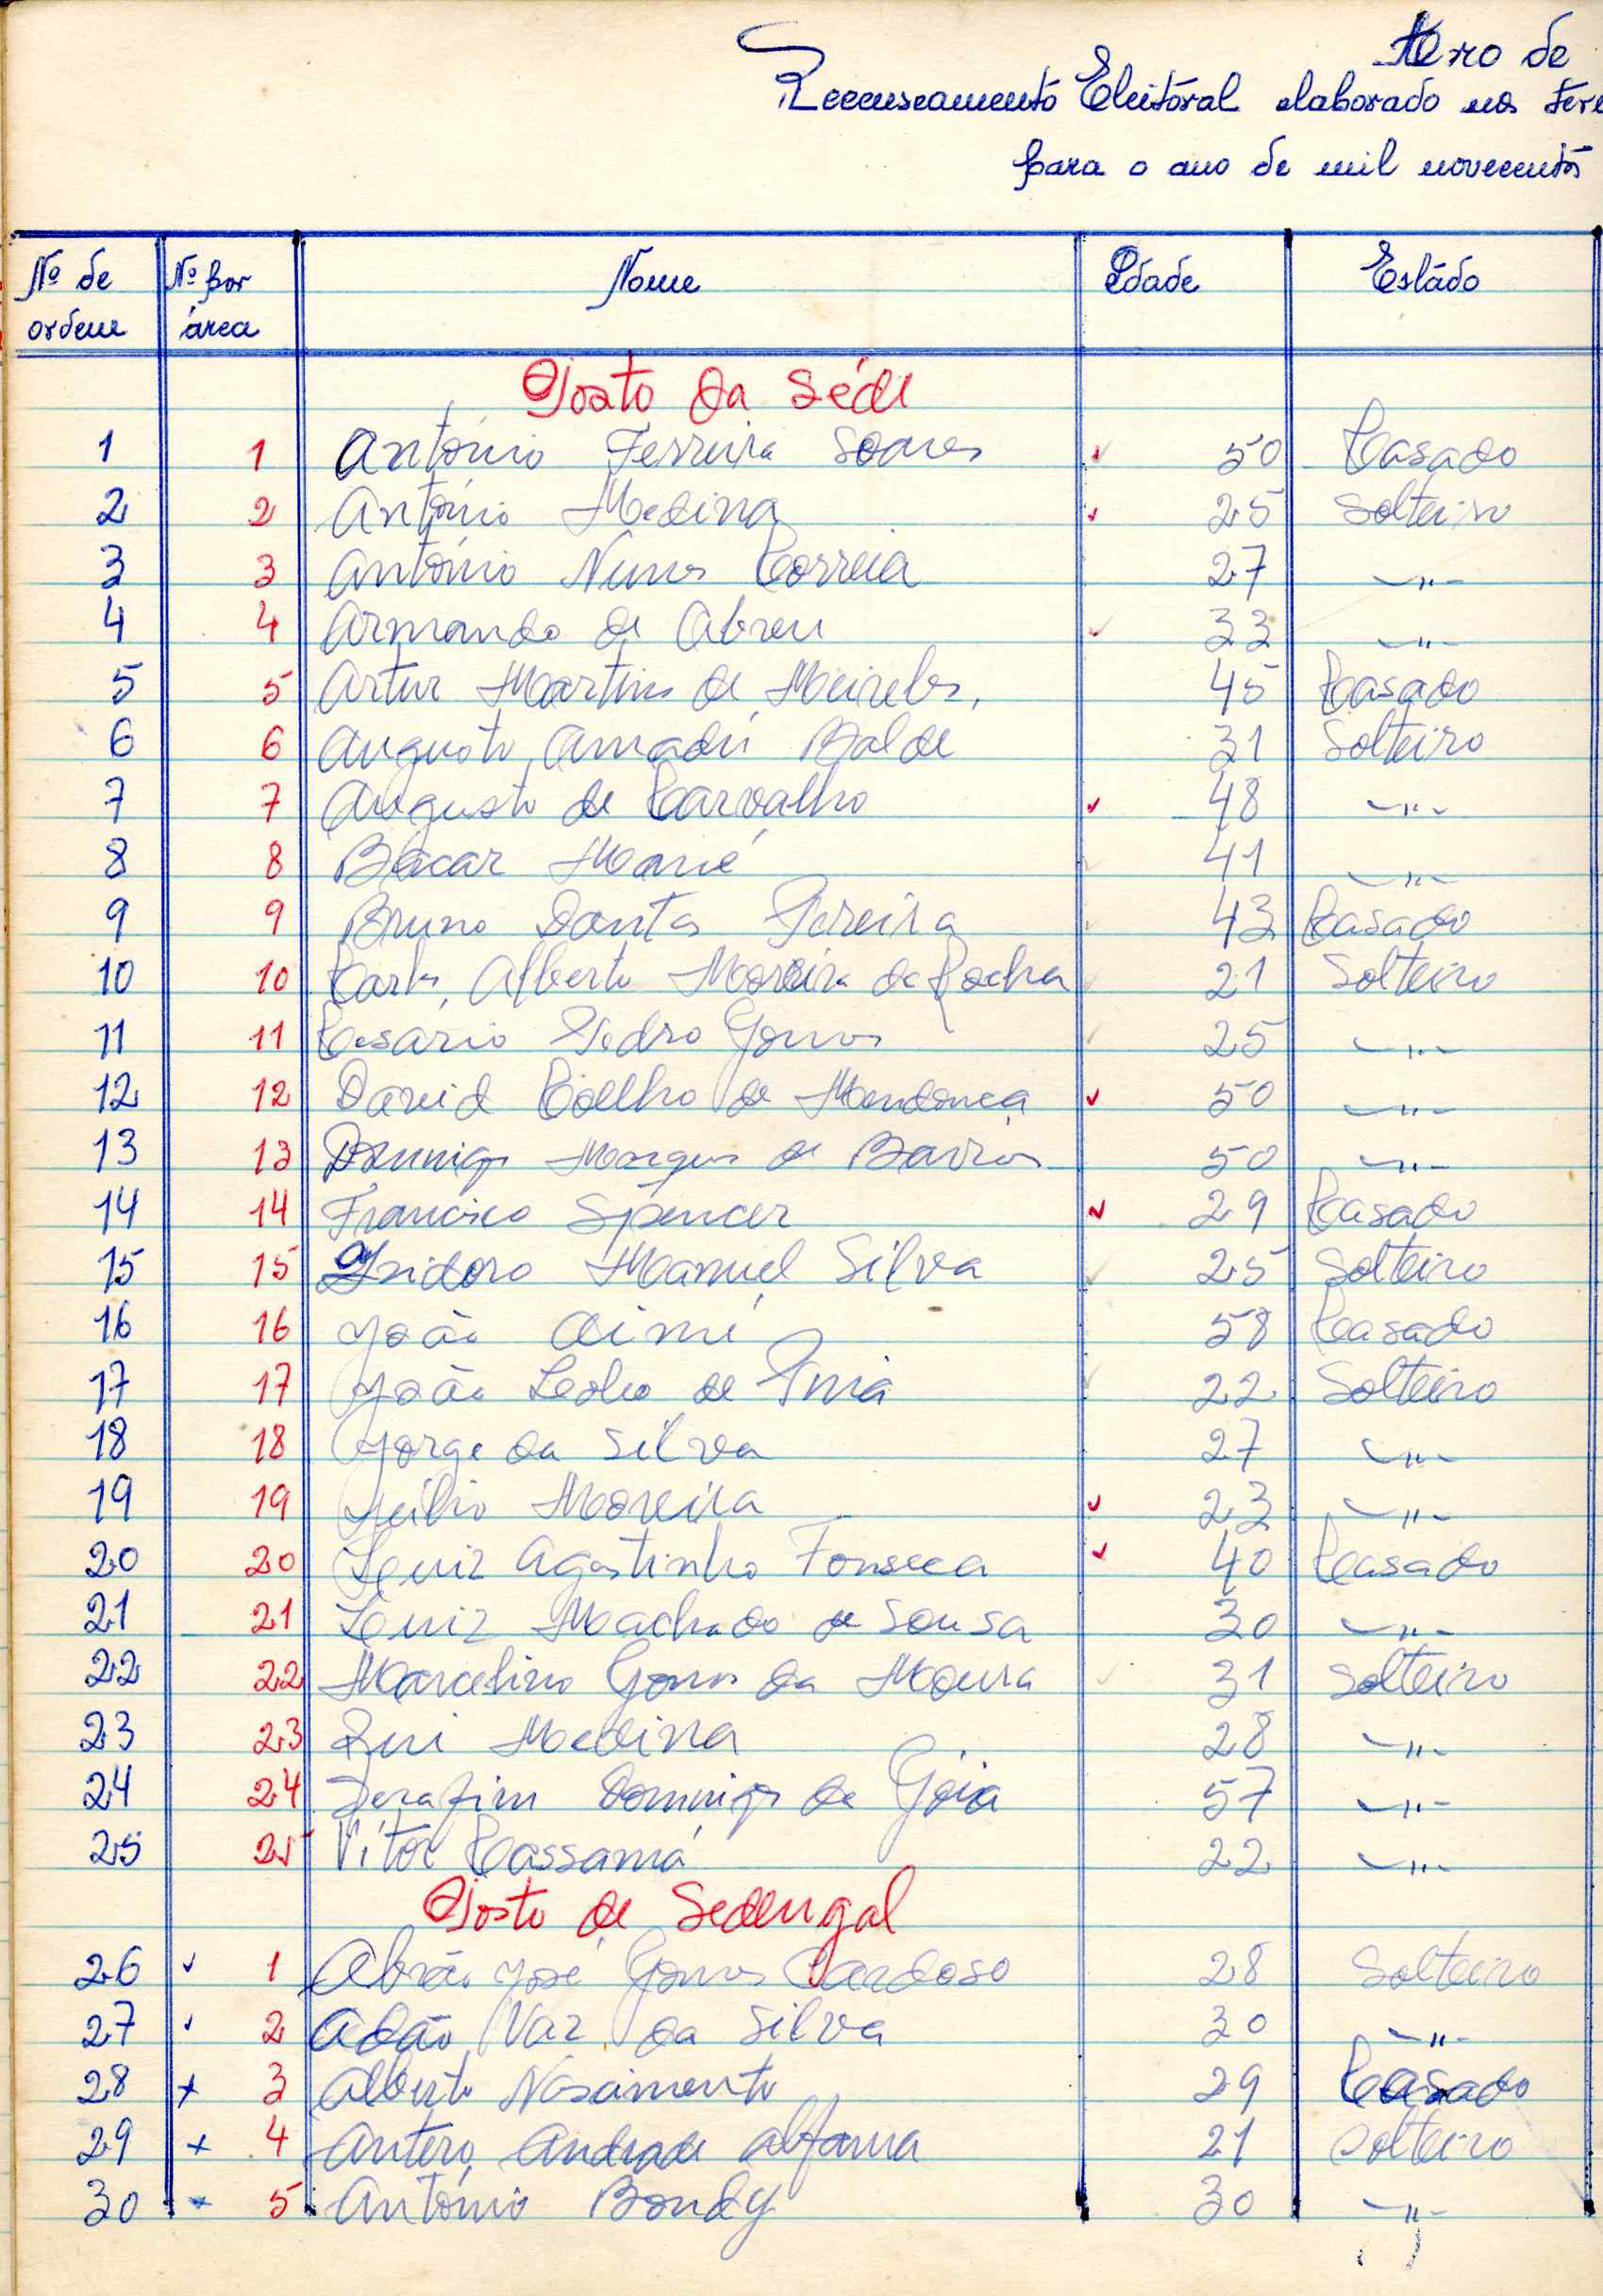 de
Recenseamento Eleitóral elaborado nos
para o ano de mil novecentos
Nº de ordem Nº por área Nome Idade Estádo
Posto da Séde
1 1 António Ferreira Soares ✓ 50 Casado
2 2 António Medina ✓ 25 Solteiro
3 3 António Nunes Correia 27 —"—
4 4 Armando de Abreu ✓ 33 —"—
5 5 Artur Martins de Meireles. 45 Casado
6 6 Augusto Amadú Balde 31 Solteiro
7 7 Augusto de Carvalho ✓ 48 —"—
8 8 Bacar Mané ✓ 41 —"—
9 9 Bruno Dantas Pereira ✓ 43 Casado
10 10 Carlos Alberto Moreira da Rocha ✓ 21 Solteiro
11 11 Cesário Pedro Gomes ✓ 25 —"—
12 12 David Coelho de Mendonça ✓ 50 —"—
13 13 Domingos Marques de Barros 50 —"—
14 14 Francisco Spencer ✓ 29 Casado
15 15 Isidoro Manuel Silva ✓ 25 Solteiro
16 16 João Aimé 58 Casado
17 17 João de Pina ✓ 22 Solteiro
18 18 Jorge da Silva 27 —"—
19 19 Júlio Moreira ✓ 23 —"—
20 20 Luiz Agostinho Fonseca ✓ 40 Casado
21 21 Luiz Machado de Sousa 30 —"—
22 22 Marcelino Gomes da Moura ✓ 31 Solteiro
23 23 Rui Medina 28 —"—
24 24 Serafim Domingos de Góia 57 —"—
25 25 Vítor Cassamá 22 —"—
Posto de Sedengal
26 ✓ 1 Abrão José Gomes Cardoso 28 Solteiro
27 ✓ 2 Adão Vaz da Silva 30 —"—
28 x 3 Alberto Nascimento 29 Casado
29 x 4 Antero Andrade Alfama 21 Solteiro
30 x 5 António Bondy 30 —"—